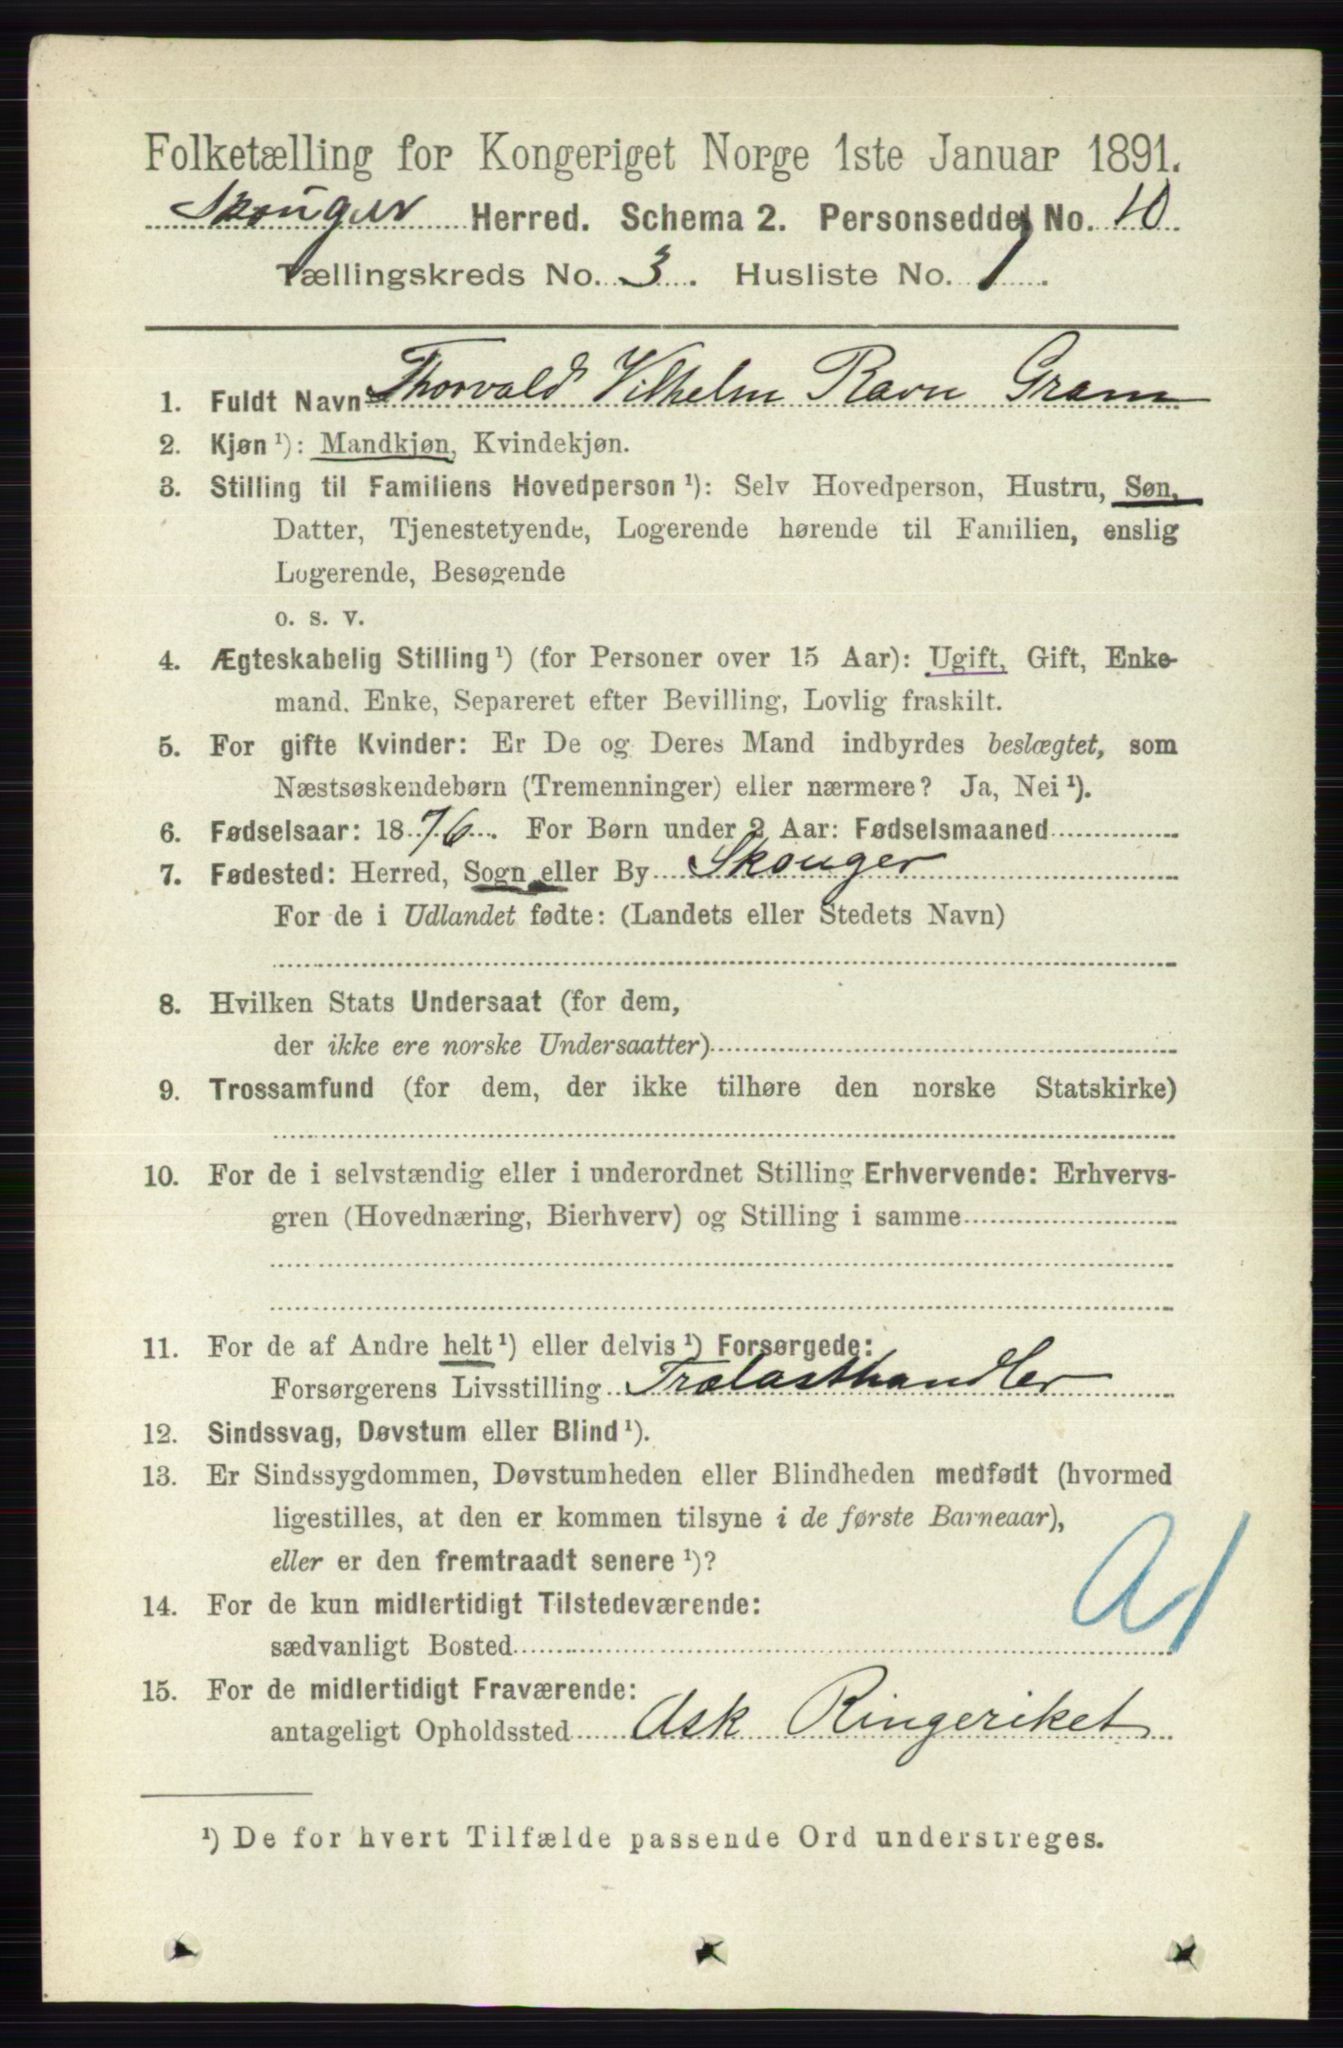 Folketælling for Kongeriget Norge 1ste Januar 1891.
Skouger Herred. Schema 2. Personseddel No. 10
Tællingskreds No. 3. Husliste No. 1.
1. Fuldt Navn Thorvald Vilhelm Ravn Gram
2. Kjøn ¹): Mandkjøn, Kvindekjøn.
3. Stilling til Familiens Hovedperson ¹): Selv Hovedperson, Hustru, Søn,
Datter, Tjenestetyende, Logerende hørende til Familien, enslig
Logerende, Besøgende
o. s. v.
4. Ægteskabelig Stilling ¹) (for Personer over 15 Aar): Ugift, Gift, Enke-
mand, Enke, Separeret efter Bevilling, Lovlig fraskilt.
5. For gifte Kvinder: Er De og Deres Mand indbyrdes beslægtet, som
Næstsøskendebørn (Tremenninger) eller nærmere? Ja, Nei ¹).
6. Fødselsaar: 1876. For Børn under 2 Aar: Fødselsmaaned
7. Fødested: Herred, Sogn eller By Skouger
For de i Udlandet fødte: (Landets eller Stedets Navn)
8. Hvilken Stats Undersaat (for dem,
der ikke ere norske Undersaatter)
9. Trossamfund (for dem, der ikke tilhøre den norske Statskirke)
10. For de i selvstændig eller i underordnet Stilling Erhvervende: Erhvervs-
gren (Hovednæring, Bierhverv) og Stilling i samme
11. For de af Andre helt ¹) eller delvis ¹) Forsørgede:
Forsørgerens Livsstilling Trælasthandler
12. Sindssvag, Døvstum eller Blind ¹).
13. Er Sindssygdommen, Døvstumheden eller Blindheden medfødt (hvormed
ligestilles, at den er kommen tilsyne i de første Barneaar),
eller er den fremtraadt senere ¹)?
14. For de kun midlertidigt Tilstedeværende:
sædvanligt Bosted
15. For de midlertidigt Fraværende:
antageligt Opholdssted Ask Ringeriket
¹) De for hvert Tilfælde passende Ord understreges.